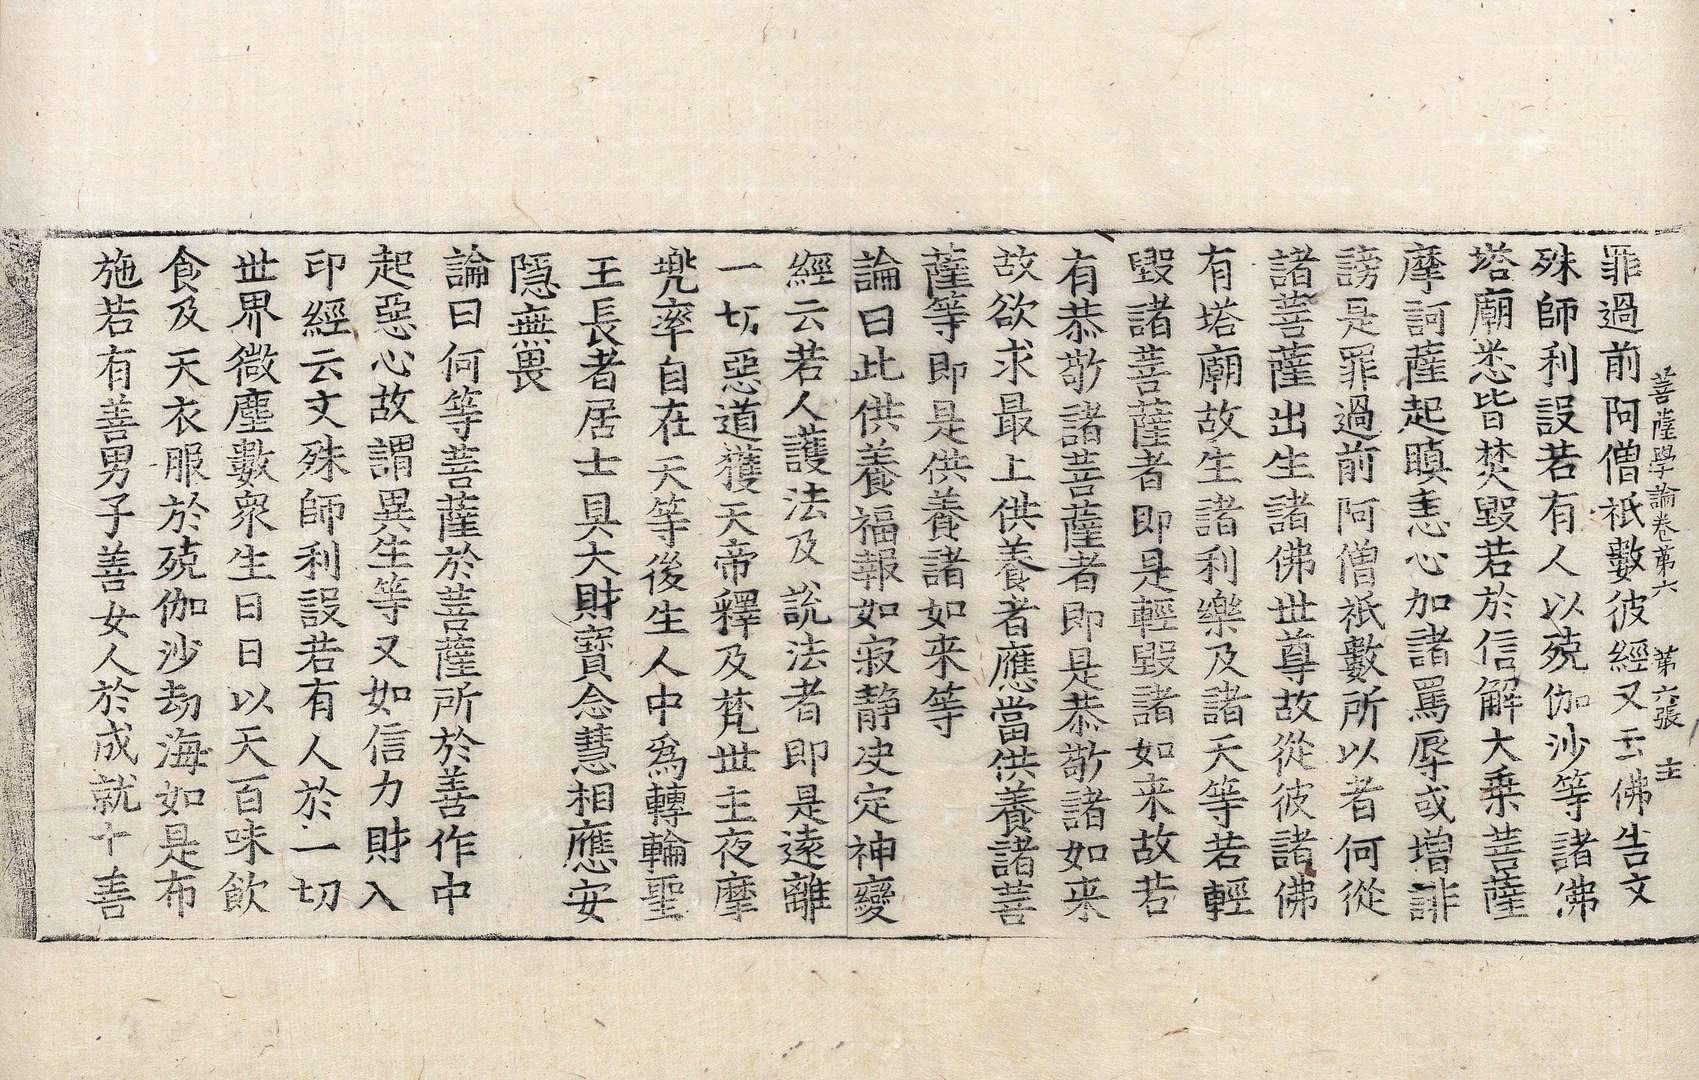 菩薩學論卷第六　第六張　主
罪過前阿僧祇數彼經又云佛告文
殊師利設若有人以殑伽沙等諸佛
塔廟悉皆焚毀若於信解大乗菩薩
摩訶薩起瞋恚心加諸罵辱或增誹
謗是罪過前阿僧祇數所以者何從
諸菩薩出生諸佛世尊故從彼諸佛
有塔廟故生諸利樂及諸天等若輕
毀諸菩薩者即是輕毀諸如来故若
有恭敬諸菩薩者即是恭敬諸如来
故欲求最上供養者應當供養諸菩
薩等即是供養諸如来等
論曰此供養福報如寂静决定神變
經云若人護法及說法者即是遠離
一切惡道獲天帝釋及梵世主夜摩
兜率自在天等後生人中爲轉輪聖
王長者居士具大財寶念慧相應安
隐無畏
論曰何等菩薩於菩薩所於善作中
起惡心故謂異生等又如信力財入
印經云文殊師利設若有人於一切
世界微塵數衆生日日以天百味飲
食及天衣服於殑伽沙劫海如是布
施若有善男子善女人於成就十善